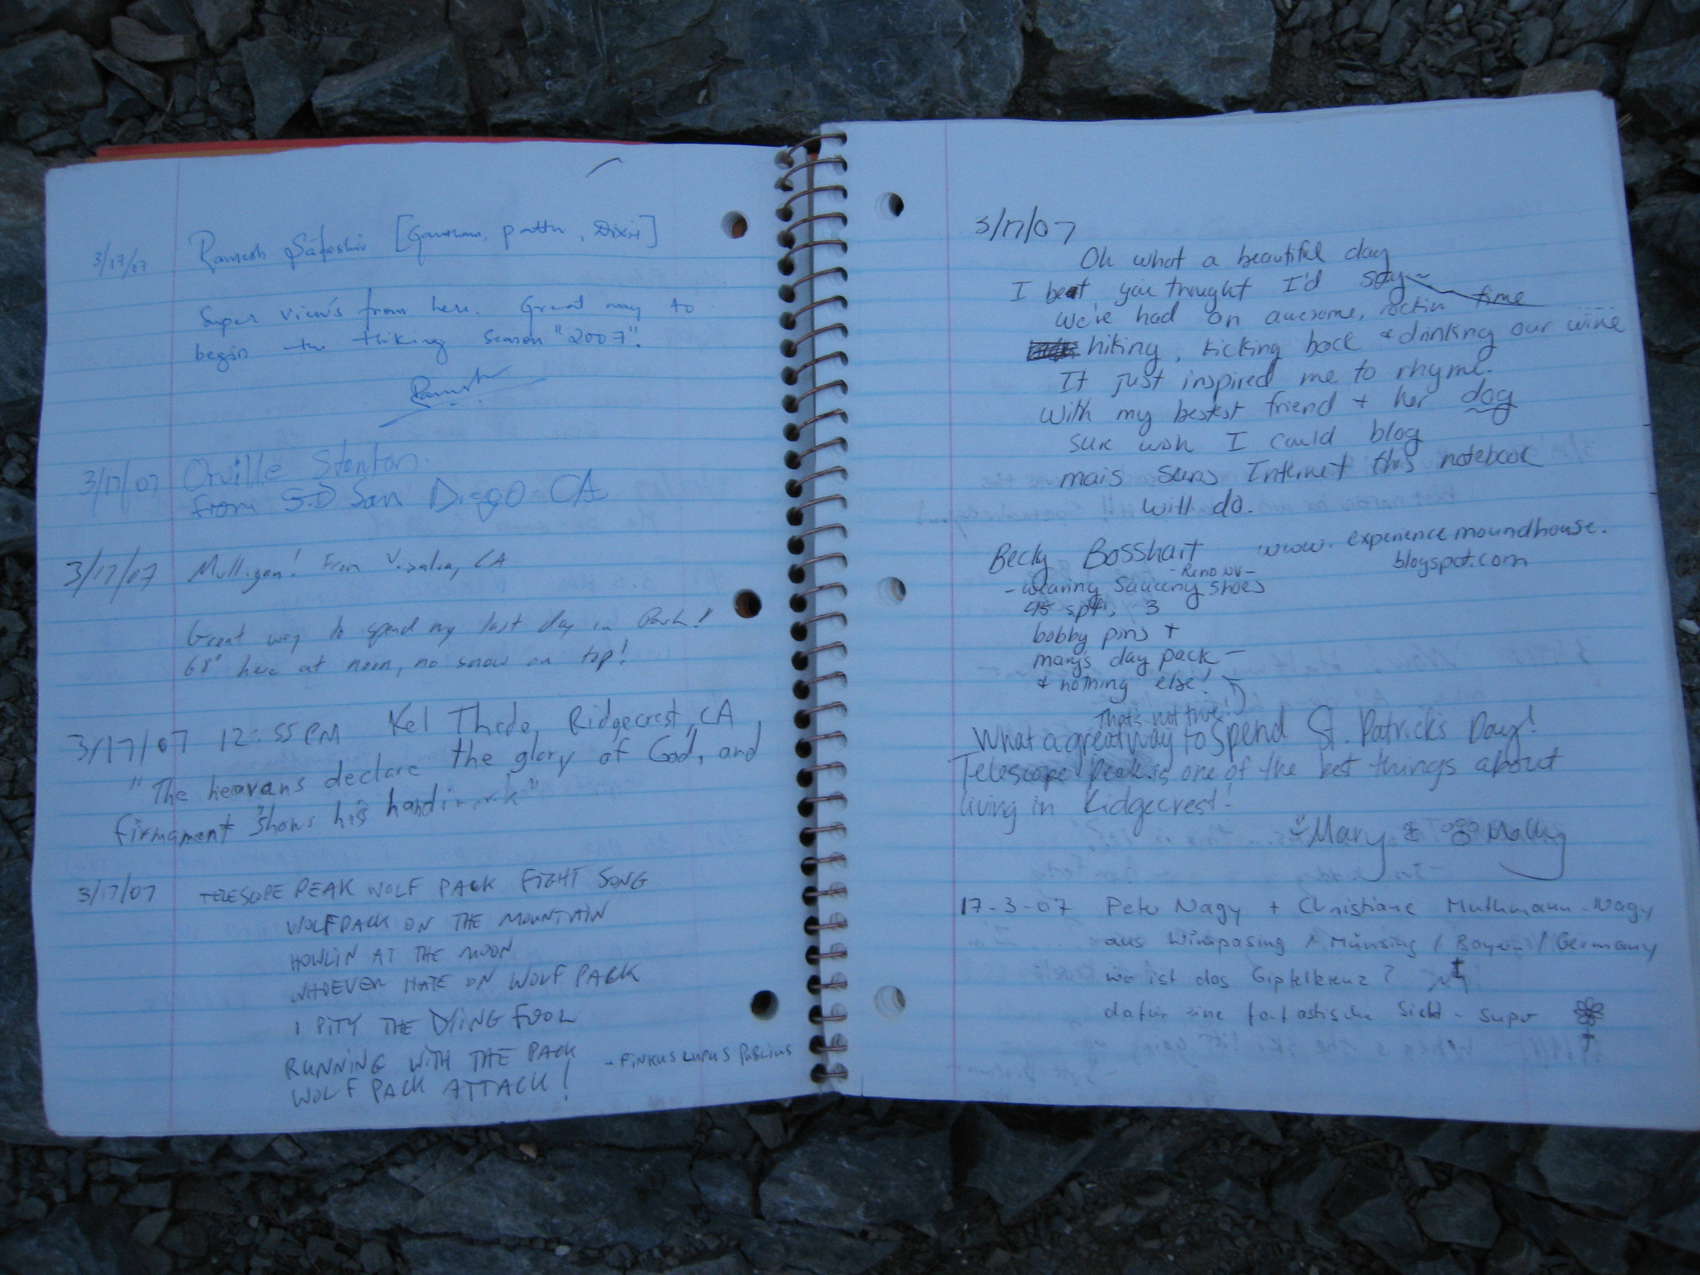 3/17/07 Ramesh [Gautam, , Dixit]
Super view's from here. Great way to
begin the hiking season "2007".
Ramesh
3/17/07 Orville Stenton.
from S.D San Diego CA
3/17/07 Mulligan! From Visalia, CA
Great way to spend my last day in Park!
68° here at noon, no snow on top!
3/17/07 12:55 PM Kel Thede, Ridgecrest, CA
"The heavans declare the glory of God, and
firmament shows his handiwork"
3/17/07 TELESCOPE PEAK WOLF PACK FIGHT SONG
WOLFPACK ON THE MOUNTAIN
HOWLIN AT THE MOON
WHOEVER HATE ON WOLF PACK
I PITY THE DYING FOOL
RUNNING WITH THE PACK
WOLF PACK ATTACK! - PINKUS LUPUS PUBLIUS
3/17/07
Oh what a beautiful day
I bet, you thought I'd say~
we've had an awesome, rockin time
hiking, kicking back & drinking our wine
It just inspired me to rhyme.
with my bestest friend + her dog
sure wish I could blog
mais sans Internet this notebook
will do.
Becky Bosshart www.experiencemoundhouse.
blogspot.com
-Reno NV-
- wearing saucony shoes
45 spf, 3
bobby pins +
mary's day pack -
+ nothing else!
That's not true!
What a great way to spend St. Patricks Day!
Telescope Peak is one of the best things about
living in Ridgecrest!
Mary & Molly
17-3-07 Peter Nagy + Christiane Muthmann-Nagy
aus Wimpasing / Münsing / Bayern / Germany
wo ist das Gipfelkreuz?
dafür eine fantastische Sicht - super